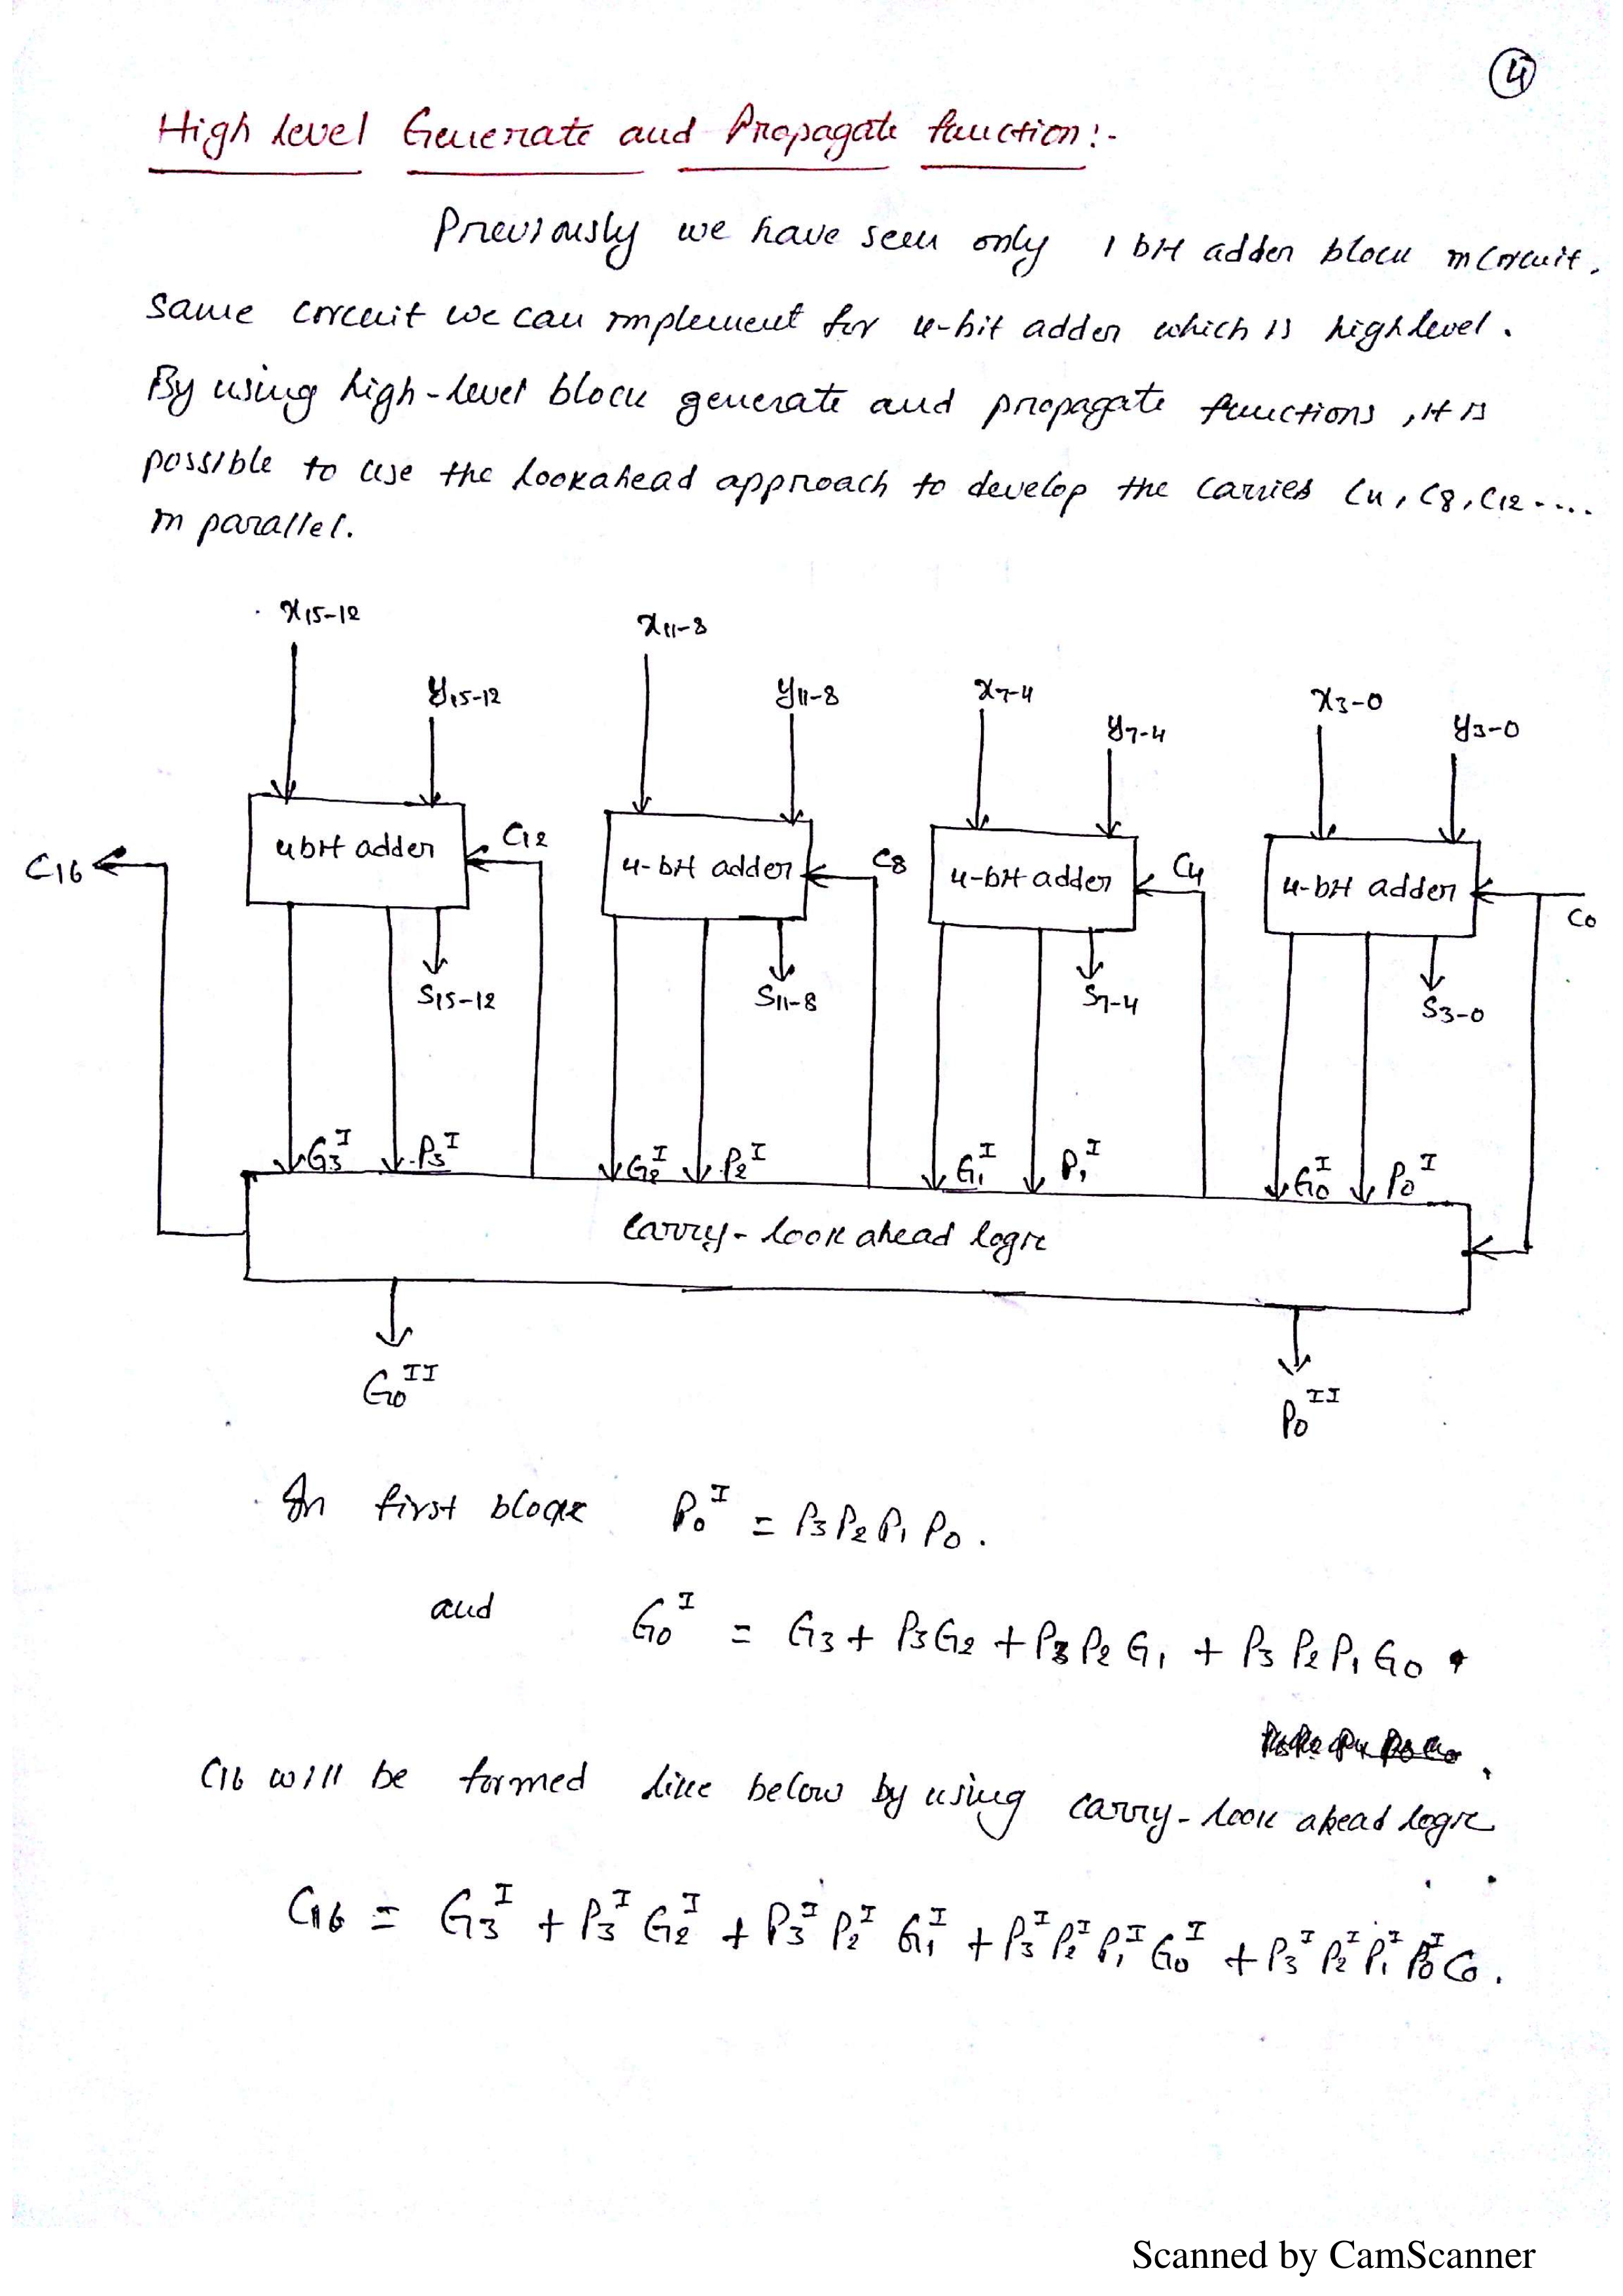 4
High level Generate and Propagate function:-
Previously we have seen only 1 bit adder block in circuit.
same circuit we can implement for 4-bit adder which is high level.
By using high-level block generate and propagate functions, it is
possible to use the lookahead approach to develop the carries C4, C8, C12....
in parallel.
x15-12
x11-8
y15-12
y11-8
x7-4
x3-0
y7-4
y3-0
4bit adder
C12
4-bit adder
C8
4-bit adder
C4
4-bit adder
C16
C0
S15-12
S11-8
S7-4
S3-0
G3^I P3^I G2^I P2^I G1^I P1^I G0^I P0^I
Carry-look ahead logic
G0^II
P0^II
In first block P0^I = P3 P2 P1 P0.
and G0^I = G3 + P3G2 + P3 P2 G1 + P3 P2 P1 G0.
C16 will be formed like below by using carry-look ahead logic
C16 = G3^I + P3^I G2^I + P3^I P2^I G1^I + P3^I P2^I P1^I G0^I + P3^I P2^I P1^I P0^I C0.
Scanned by CamScanner